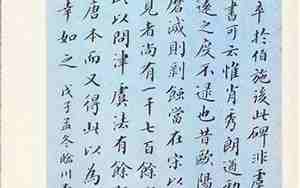 卒於伯施後此碑非虞
書可云惟肖秀朗
邃之度不逮也昔歐陽
磨滅則剝蝕當在宋以
見者尚有一千七百餘
以問津虞法有餘
唐本而又得此以為
幸如之 戊子孟冬臨川